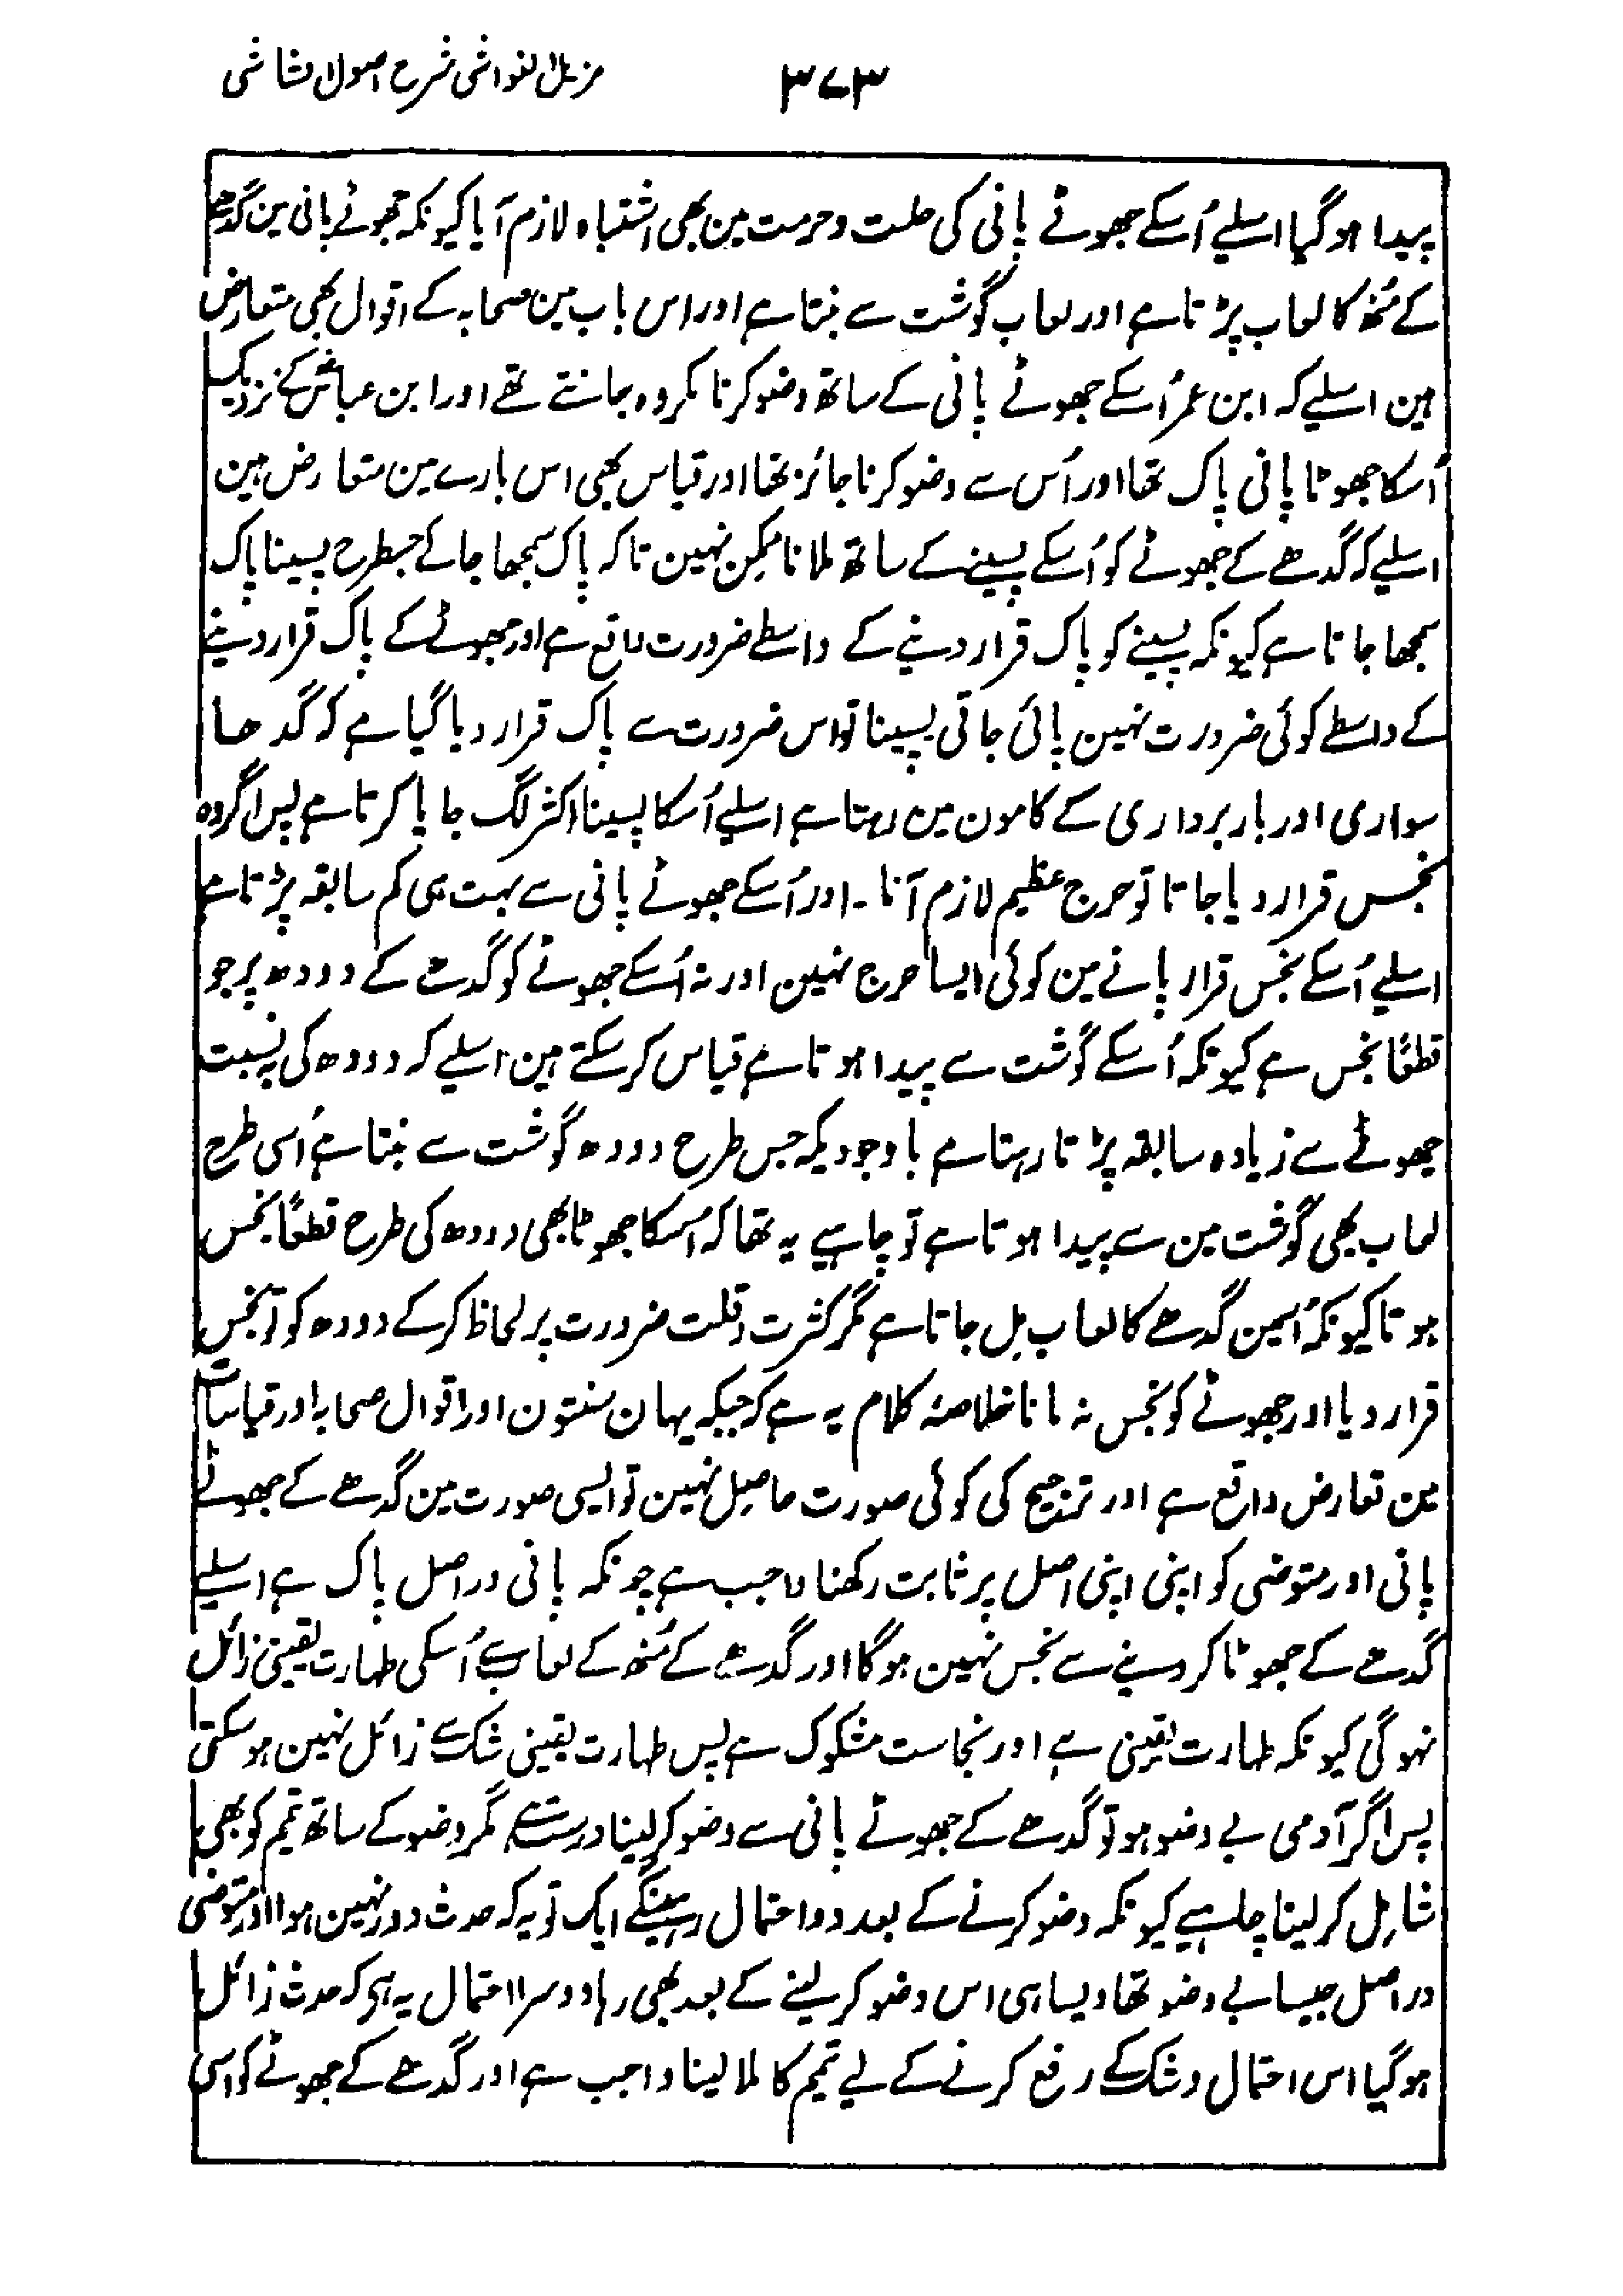 مزیل الغواشی شرح اصول الشاشی
۳۷۳
پیدا ہوگیا اسلیے اُسکے جھوٹے پانی کی حلت وحرمت مین بھی اشتباہ لازم آیا کیونکہ جھوٹے پانی مین گدھے
کے مُنھ کا لعاب پڑتا ہے اور لعاب گوشت سے بنتا ہے اور اس باب مین صحابہ کے اقوال بھی متعارض
ہین اسلیے کہ ابن عمرؓ اُسکے جھوٹے پانی کے ساتھ وضو کرنا مکروہ جانتے تھے اور ابن عباسؓ کے نزدیک
اُسکا جھوٹا پانی پاک تھا اور اُس سے وضو کرنا جائز تھا اور قیاس بھی اس بارے مین متعارض ہین
اسلیے کہ گدھے کے جھوٹے کو اُسکے پسینے کے ساتھ ملانا ممکن نہین تاکہ پاک سمجھا جائے جسطرح پسینا پاک
سمجھا جاتا ہے کیونکہ پسینے کو پاک قرار دینے کے واسطے ضرورت واقع ہے اور جھوٹے کے پاک قرار دینے
کے واسطے کوئی ضرورت نہین پائی جاتی پسینا تو اس ضرورت سے پاک قرار دیا گیا ہے کہ گدھا
سواری اور باربرداری کے کامون مین رہتا ہے اسلیے اُسکا پسینا اکثر لگ جایا کرتا ہے پس اگر وہ
نجس قرار دیا جاتا تو حرج عظیم لازم آتا۔ اور اُسکے جھوٹے پانی سے بہت ہی کم سابقہ پڑتا ہے
اسلیے اُسکے نجس قرار پانے مین کوئی ایسا حرج نہین اور نہ اُسکے جھوٹے کو گدھے کے دودھ پر جو
قطعًا نجس ہے کیونکہ اُسکے گوشت سے پیدا ہوتا ہے قیاس کرسکتے ہین اسلیے کہ دودھ کی بہ نسبت
جھوٹے سے زیادہ سابقہ پڑتا رہتا ہے باوجودیکہ جس طرح دودھ گوشت سے بنتا ہے اُسی طرح
لعاب بھی گوشت مین سے پیدا ہوتا ہے تو چاہیے یہ تھا کہ اُسکا جھوٹا بھی دودھ کی طرح قطعًا نجس
ہوتا کیونکہ اُسمین گدھے کا لعاب مِل جاتا ہے مگر کثرت وقلت ضرورت پر لحاظ کرکے دودھ کو تو نجس
قرار دیا اور جھوٹے کو نجس نہ مانا خلاصۂ کلام یہ ہے کہ جبکہ یہان سنتون اور اقوال صحابہ اور قیاسات
مین تعارض واقع ہے اور ترجیح کی کوئی صورت حاصِل نہین تو ایسی صورت مین گدھے کے جھوٹے
پانی اور متوضی کو اپنی اپنی اصل پر ثابت رکھنا واجب ہے چونکہ پانی دراصل پاک ہے اسلیے
گدھے کے جھوٹا کردینے سے نجس نہین ہوگا اور گدھے کے مُنھ کے لعاب سے اُسکی طہارت یقینی زائل
نہوگی کیونکہ طہارت یقینی ہے اور نجاست مشکوک ہے پس طہارت یقینی شک سے زائل نہین ہوسکتی
پس اگر آدمی بے وضو ہو تو گدھے کے جھوٹے پانی سے وضو کرلینا درست ہے مگر وضو کے ساتھ تیمم کو بھی
شامِل کرلینا چاہیے کیونکہ وضو کرنے کے بعد دو احتمال رہینگے ایک تو یہ کہ حدث دور نہین ہوا اور متوضی
دراصل جیسا بے وضو تھا ویسا ہی اس وضو کرلینے کے بعد بھی رہا دوسرا احتمال یہ ہی کہ حدث زائل
ہوگیا اس احتمال وشک کے رفع کرنے کے لیے تیمم کا ملا لینا واجب ہے اور گدھے کے جھوٹے کو اسی